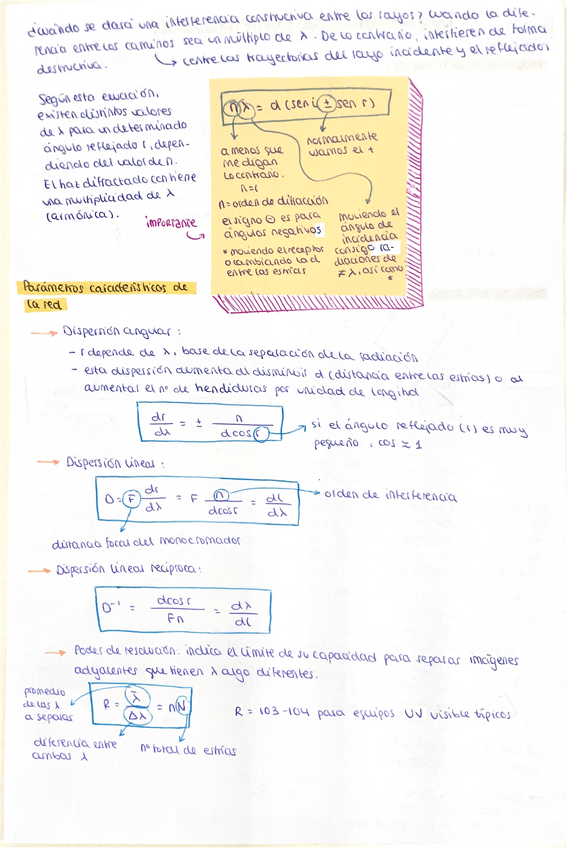 ¿Cuándo se dará una interferencia constructiva entre los rayos? Cuando la dife-
rencia entre los caminos sea un múltiplo de λ. De lo contrario, interfieren de forma
destructiva.
entre las trayectorias del rayo incidente y el reflejado.
Según esta ecuación,
existen distintos valores
de λ para un determinado
ángulo reflejado r, depen-
diendo del valor de n.
El haz difractado contiene
una multiplicidad de λ
(armónica).
importante
nλ = d (sen i ± sen r)
a menos que
me digan
lo contrario.
n=1
normalmente
usamos el +
n = orden de difracción
el signo ⊖ es para
ángulos negativos
* moviendo el receptor
o cambiando la d
entre las estrías
moviendo el
ángulo de
incidencia
consigo ra-
diaciones de
≠ λ, así como
*
Parámetros característicos de
la red
→ Dispersión angular:
- r depende de λ, base de la separación de la radiación
- esta dispersión aumenta al disminuir d (distancia entre las estrías) o al
aumentar el nº de hendiduras por unidad de longitud
dr/dλ = ± n/d cos r
si el ángulo reflejado (r) es muy
pequeño, cos ≈ 1
→ Dispersión lineal:
D = F dr/dλ = F n/d cos r = dl/dλ
orden de interferencia
distancia focal del monocromador
→ Dispersión lineal recíproca:
D⁻¹ = d cos r/Fn = dλ/dl
→ Poder de resolución: indica el límite de su capacidad para separar imágenes
adyacentes que tienen λ algo diferentes.
promedio
de las λ
a separar
R = λ̄/Δλ = nN
R = 103-104 para equipos UV visible típicos
diferencia entre
ambas λ
nº total de estrías